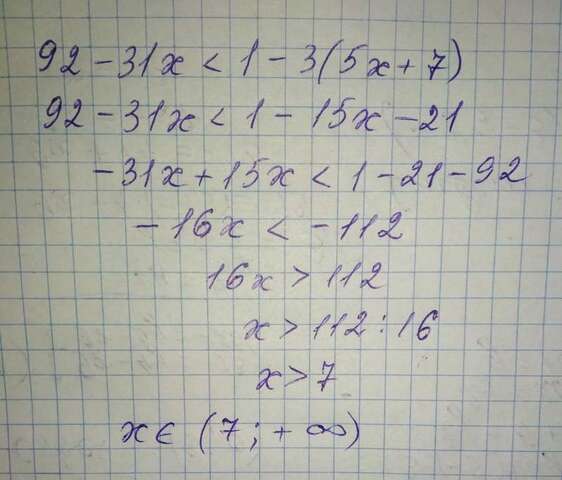 92 - 31x < 1 - 3(5x + 7)
92 - 31x < 1 - 15x - 21
-31x + 15x < 1 - 21 - 92
-16x < -112
16x > 112
x > 112 : 16
x > 7
x ∈ (7 ; + ∞)